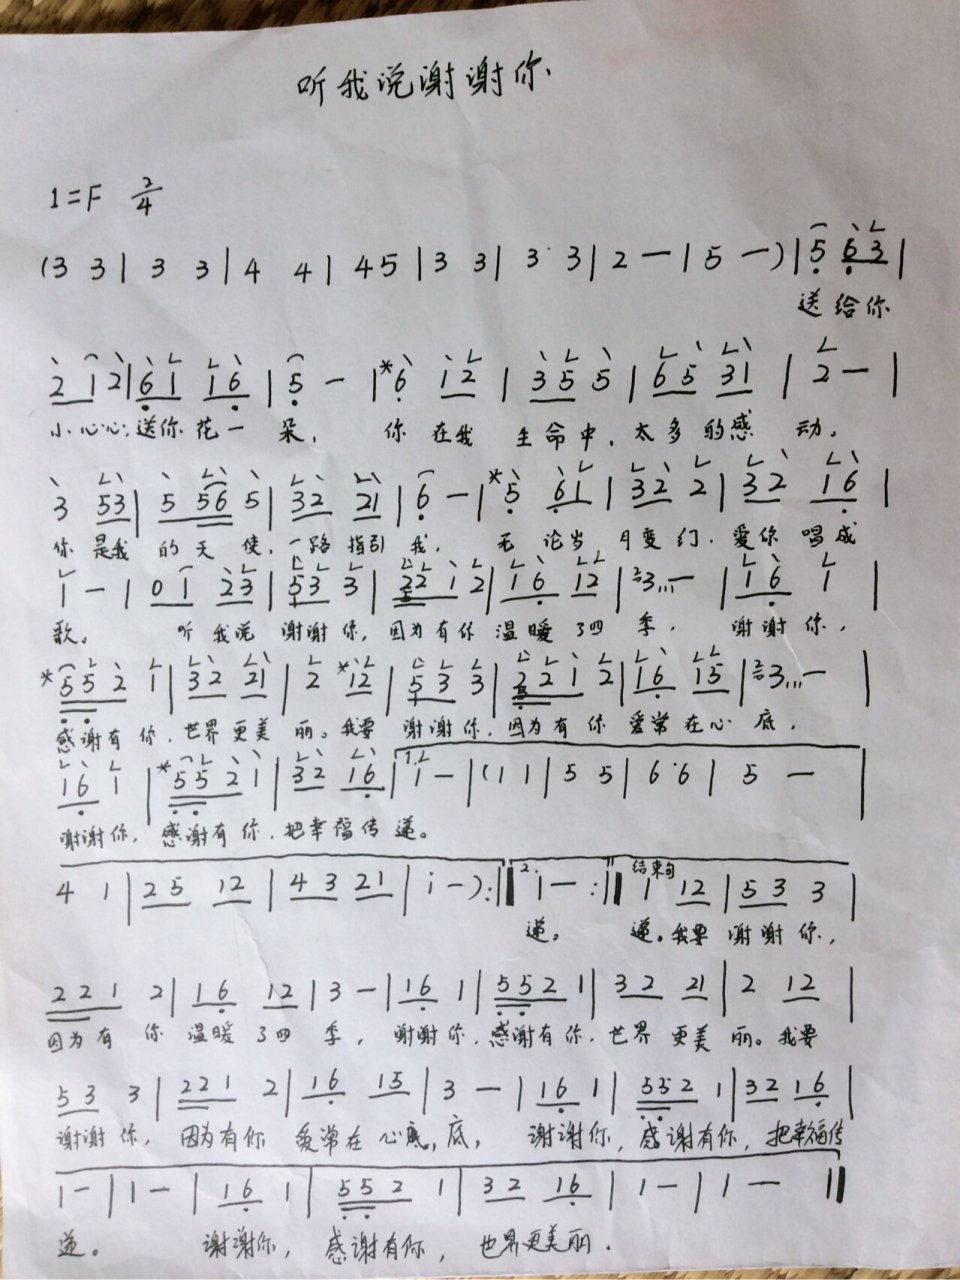 听我说谢谢你
1=F 2/4
(3 3 | 3 3 | 4 4 | 4 5 | 3 3 | 3· 3 | 2 — | 5 — ) | 5 6 3 |
送给你
2 1 2 | 6 1 1 6 | 5 — | *6 1 2 | 3 5 5 | 6 5 3 1 | 2 — |
小心心,送你花一朵, 你在我生命中,太多的感动。
3 5 3 | 5 5 6 5 | 3 2 2 1 | 6 — | *5 6 1 | 3 2 2 | 3 2 1 6 |
你是我的天使,一路指引我, 无论岁月变幻.爱你唱成
1 — | 0 1 2 3 | 5 3 3 | 2 2 1 2 | 1 6 1 2 | 3 — | 1 6 1 |
歌。 听我说谢谢你,因为有你温暖了四季, 谢谢你,
*5 5 2 1 | 3 2 2 1 | 2 *1 2 | 5 3 3 | 2 2 1 2 | 1 6 1 5 | 3 — |
感谢有你,世界更美丽。我要谢谢你,因为有你爱常在心底,
1 6 1 | *5 5 2 1 | 3 2 1 6 | 1. 1 — | (1 1 | 5 5 | 6· 6 | 5 —
谢谢你,感谢有你.把幸福传递。
4 1 | 2 5 1 2 | 4 3 2 1 | i — ) :‖ 2. 1 — :‖ 结束句 1 1 2 | 5 3 3 |
递。 递。我要谢谢你,
2 2 1 2 | 1 6 1 2 | 3 — | 1 6 1 | 5 5 2 1 | 3 2 2 1 | 2 1 2 |
因为有你温暖了四季,谢谢你,感谢有你.世界更美丽。我要
5 3 3 | 2 2 1 2 | 1 6 1 5 | 3 — | 1 6 1 | 5 5 2 1 | 3 2 1 6 |
谢谢你,因为有你爱常在心底,底, 谢谢你,感谢有你,把幸福传
1 — | 1 — | 1 6 1 | 5 5 2 1 | 3 2 1 6 | 1 — | 1 — ‖
递。 谢谢你,感谢有你,世界更美丽.